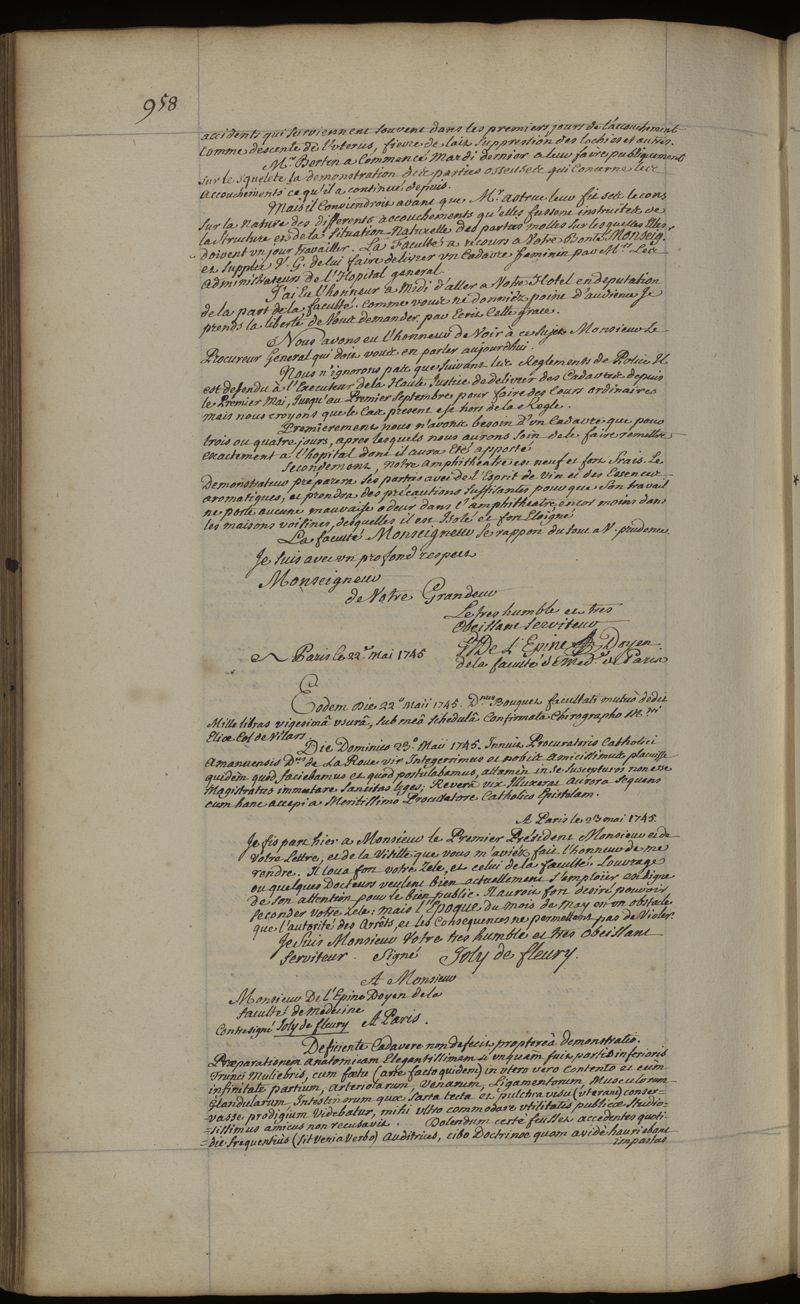 958
accidents qui surviennent souvent dans les premiers jours de l'accouchement
comme descente de l'uterus, fievre de lait suppression des lochies et autres.
Mr. Bertin a Commencé Mardi dernier a leur faire publiquement
sur le squelete la demonstration des parties osseuses qui Concerne les
accouchements ce qu'il a continué depuis.
Mais il Conviendroit avant que Mr. Astruc leur fit ses lecons
sur la Nature des differents accouchements qu'elles fussent instruites de
la structure et de la situation Naturelle des parties molles sur lesquelles Elles
doivent un jour travailler. La Faculté a recours a Votre Bonté Monseig.
et supplie V. G. de lui faire delivrer un Cadavre feminin par Mrs. Les
Administrateurs de l'Hopital general.
J'ai Eu l'honneur a Midi d'aller a Votre Hotel en deputation
de la part de la faculté. Comme vous ne donniez point d'audience Je
prends la liberté de Vous demander par Ecrit Cette grace.
Nous avons eu l'honneur de Voir à ce sujet Monsieur Le
Procureur General qui doit vous en parler aujourdhui.
Nous n'ignorons pas que suivant les Reglements de Police Il
est defendu à l'Executeur de la Haute Justice de delivrer des Cadavres depuis
le Premier Mai, Jusqu'au Premier Septembre pour faire des Cours ordinaires
mais nous croyons que le Cas present est hors de la Regle.
Premierement nous n'avons besoin d'un Cadavre que pour
trois ou quatre jours, apres lesquels nous aurons soin de le faire remettre
exactement a l'hopital dont il aura Eté apporté
Secondement, Notre Amphitheatre est neuf et fort frais. Le
demonstrateur preparera ses parties avec de l'Esprit de Vin et des Essences
aromatiques, et prendra des précautions suffisantes pour que son travail
ne porte aucune mauvaise odeur dans l'amphitheatre, encor moins dans
les maisons voisines, desquelles il est Isolé et fort Eloigné
La faculté Monseigneur se rapporte du tout a V. prudence.
Je suis avec un profond respect
Monseigneur
de Votre Grandeur
Le tres humble et tres
Obeissant serviteur
De l'Epine Doyen
A Paris le 22e. Mai 1745 de la faculté de Med. de Paris
Eodem Die 22o. Maii 1745. Dnus Bouquet facultati mutuò dedit
Mille libras vigesimâ usurâ, sub meâ schedulâ Confirmatâ Chirographo M.ri
Eliæ Col de Vilars.
Die Dominico 23o. Maii 1745. Innuit Procuratoris Catholici
amanuensis Dnus de La Roue vir Integerrimus et nobis Amicissimus placuisse
quidem quod faciebamus et quod postulabamus, attamen in se suscepturos non esse
Magistratus immutare sancitas leges; Reverâ vix Illuxerat aurora sequens
cum hanc accepi a Meritissimo Procuratore Catholico Epistolam.
A Paris le 23 mai 1745.
Je fis part hier a Monsieur le Premier President Monsieur et de
Votre Lettre, et de la Visitte que vous m'aviez fait l'honneur de me
rendre. Il loua fort votre Zele, et celui de la faculté. Louvrage
ou quelques Docteurs veulent bien actuellement s'emploier est digne
de son attention pour le bien public. Il auroit fort desiré pouvoir
seconder votre Zele: mais l'Epoque du mois de May est un obstacle
que l'autorité des Arrêts, et les Consequences ne permettent pas de Violer.
Je suis Monsieur Votre tres humble et tres Obeissant
Serviteur. Signé Joly de fleury.
A Monsieur
Monsieur De l'Epine Doyen de la
faculté de medecine
Contresigné Joly de fleury A Paris.
Deficiente Cadavere non defecit proptereà demonstratio.
Præparationem anatomicam Elegantissimam si unquam fuit partis inferioris
Trunci Muliebris, cum foetu (arte facto quidem) in utero vero Contento et cum
infinitate partium, Arteriarum, Venarum, Ligamentorum, Musculorum
Glandularum, Intestinorum quæ sarta tecta et pulchra visu (uteran) conser-
vasse prodigium Videbatur, mihi ultro commodare utilitatis publicæ studio-
-sissimus amicus non recusavit. Dolendum certe fuisset accedentes quoti-
-die frequentius (sit Venia Verbo) Auditrices, cibo Doctrinæ quam avidè hauriebant
impastas